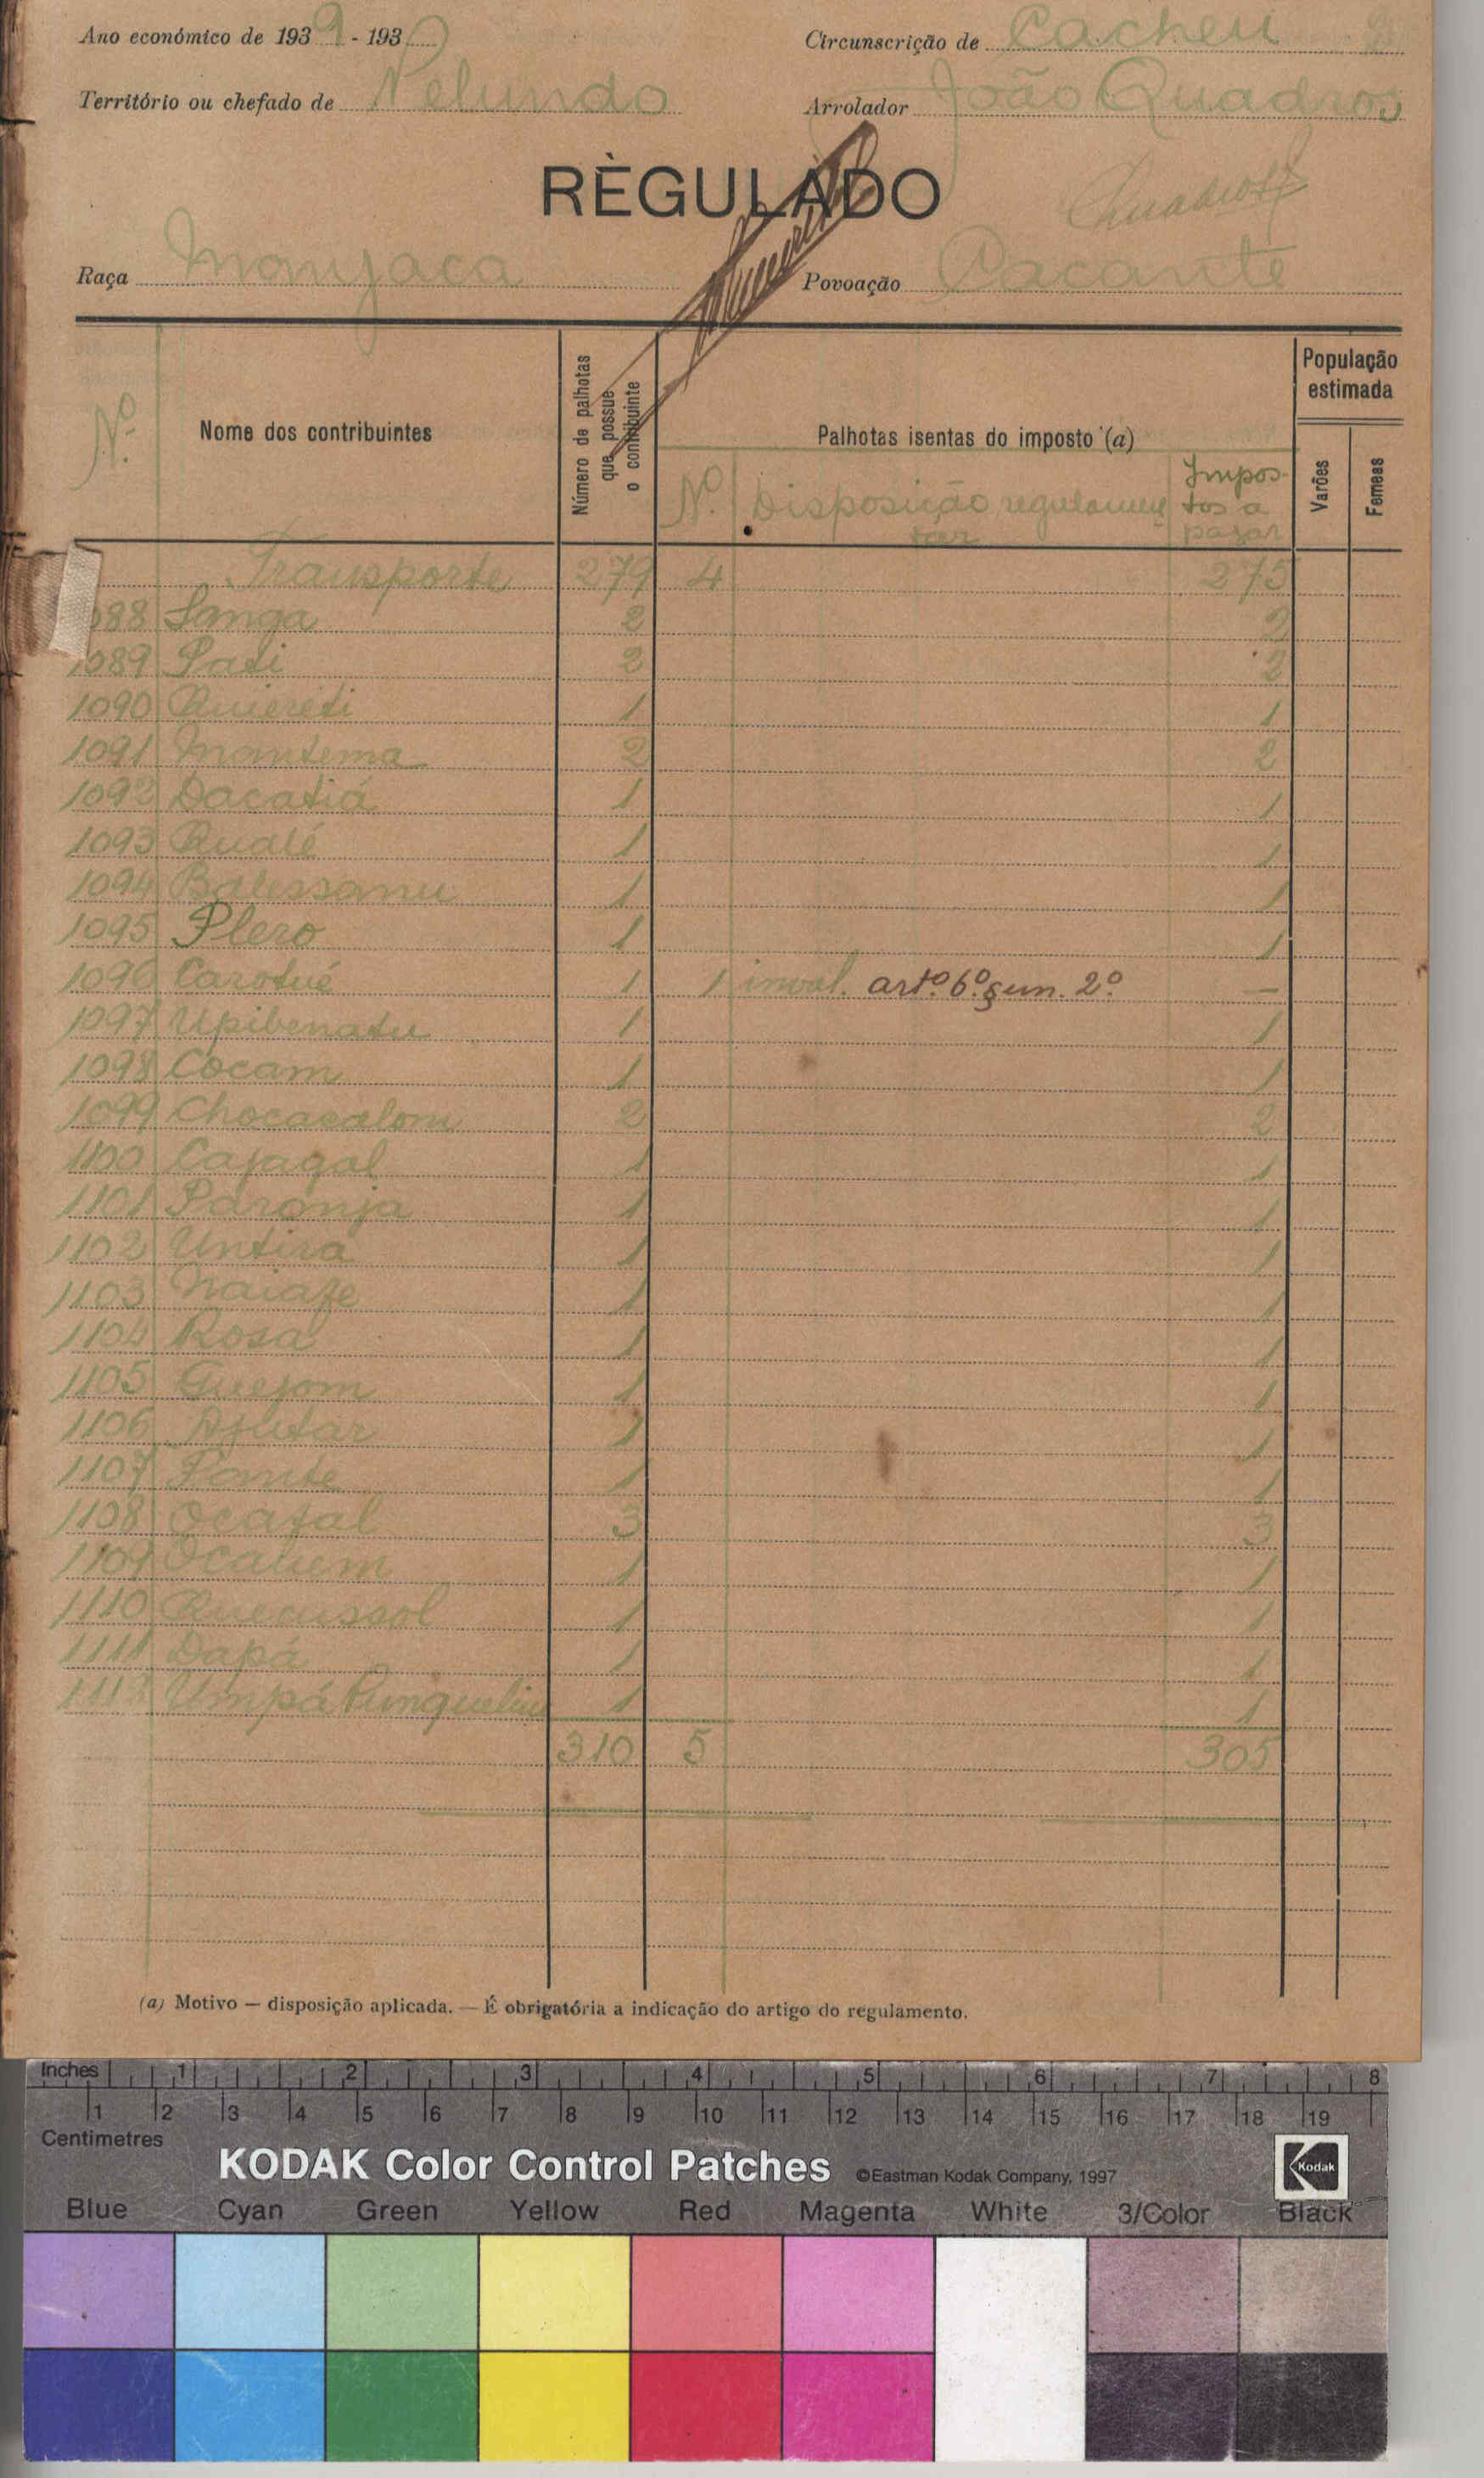 Ano económico de 1939 - 193
Circunscrição de Cacheu
Território ou chefado de Pelundo
Arrolador João Quadros
RÈGULADO
Quadros
Raça Manjaca
Povoação Cacante
Nº
Nome dos contribuintes
Número de palhotas que possue o contribuinte
Palhotas isentas do imposto (a)
Nº. Disposição regulamentar
Impostos a pagar
População estimada
Varões
Femeas
Transporte 279 4 275
088 Sanga 2 2
1089 Pati 2 2
1090 Quiereti 1 1
1091 Mantema 2 2
1092 Dacatiá 1 1
1093 Qualé 1 1
1094 Balessanu 1 1
1095 Plero 1 1
1096 Carotué 1 1 inval. artº. 6º. § un. 2º —
1097 Upibenatu 1 1
1098 Cocam 1 1
1099 Chocacalom 2 2
1100 Cajagal 1 1
1101 Paronja 1 1
1102 Untira 1 1
1103 Naiafe 1 1
1104 Rosa 1 1
1105 Guejom 1 1
1106 1 1
1107 Fante 1 1
1108 Ocafal 3 3
1109 Ocaliem 1 1
1110 Quecussol 1 1
1111 Dapá 1 1
1112 Umpá 1 1
310 5 305
(a) Motivo — disposição aplicada. — É obrigatória a indicação do artigo do regulamento.
Inches 1 2 3 4 5 6 7 8
1 2 3 4 5 6 7 8 9 10 11 12 13 14 15 16 17 18 19
Centimetres
KODAK Color Control Patches ©Eastman Kodak Company, 1997 Kodak
Blue Cyan Green Yellow Red Magenta White 3/Color Black